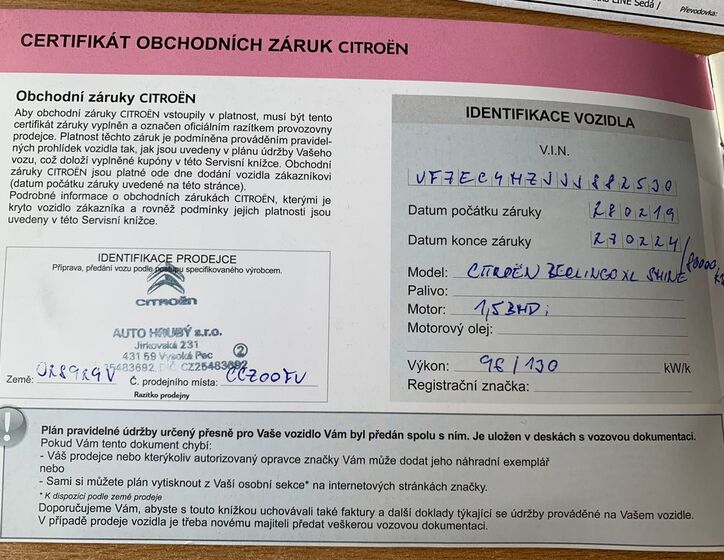 LINE Šedá /
Převodovka:
CERTIFIKÁT OBCHODNÍCH ZÁRUK CITROËN
Obchodní záruky CITROËN
Aby obchodní záruky CITROËN vstoupily v platnost, musí být tento
certifikát záruky vyplněn a označen oficiálním razítkem provozovny
prodejce. Platnost těchto záruk je podmíněna prováděním pravidel-
ných prohlídek vozidla tak, jak jsou uvedeny v plánu údržby Vašeho
vozu, což doloží vyplněné kupóny v této Servisní knížce. Obchodní
záruky CITROËN jsou platné ode dne dodání vozidla zákazníkovi
(datum počátku záruky uvedené na této stránce).
Podrobné informace o obchodních zárukách CITROËN, kterými je
kryto vozidlo zákazníka a rovněž podmínky jejich platnosti jsou
uvedeny v této Servisní knížce.
IDENTIFIKACE PRODEJCE
Příprava, předání vozu podle postupu specifikovaného výrobcem.
CITROËN
AUTO HRUBÝ s.r.o.
Jirkovská 231
431 59 Vysoká Pec
2
25483692, DIČ: CZ25483692
Země: Č. prodejního místa: CCZ00FV
Razítko prodejny
IDENTIFIKACE VOZIDLA
V.I.N.
VF7EC4HZJJJ882530
Datum počátku záruky 280219
Datum konce záruky 270224 /
Model: CITROËN BERLINGO XL SHINE
Palivo:
Motor: 1,5 BHDi
Motorový olej:
Výkon: 96/130 kW/k
Registrační značka:
!
Plán pravidelné údržby určený přesně pro Vaše vozidlo Vám byl předán spolu s ním. Je uložen v deskách s vozovou dokumentací.
Pokud Vám tento dokument chybí:
- Váš prodejce nebo kterýkoliv autorizovaný opravce značky Vám může dodat jeho náhradní exemplář
nebo
- Sami si můžete plán vytisknout z Vaší osobní sekce* na internetových stránkách značky.
* K dispozici podle země prodeje
Doporučujeme Vám, abyste s touto knížkou uchovávali také faktury a další doklady týkající se údržby prováděné na Vašem vozidle.
V případě prodeje vozidla je třeba novému majiteli předat veškerou vozovou dokumentaci.